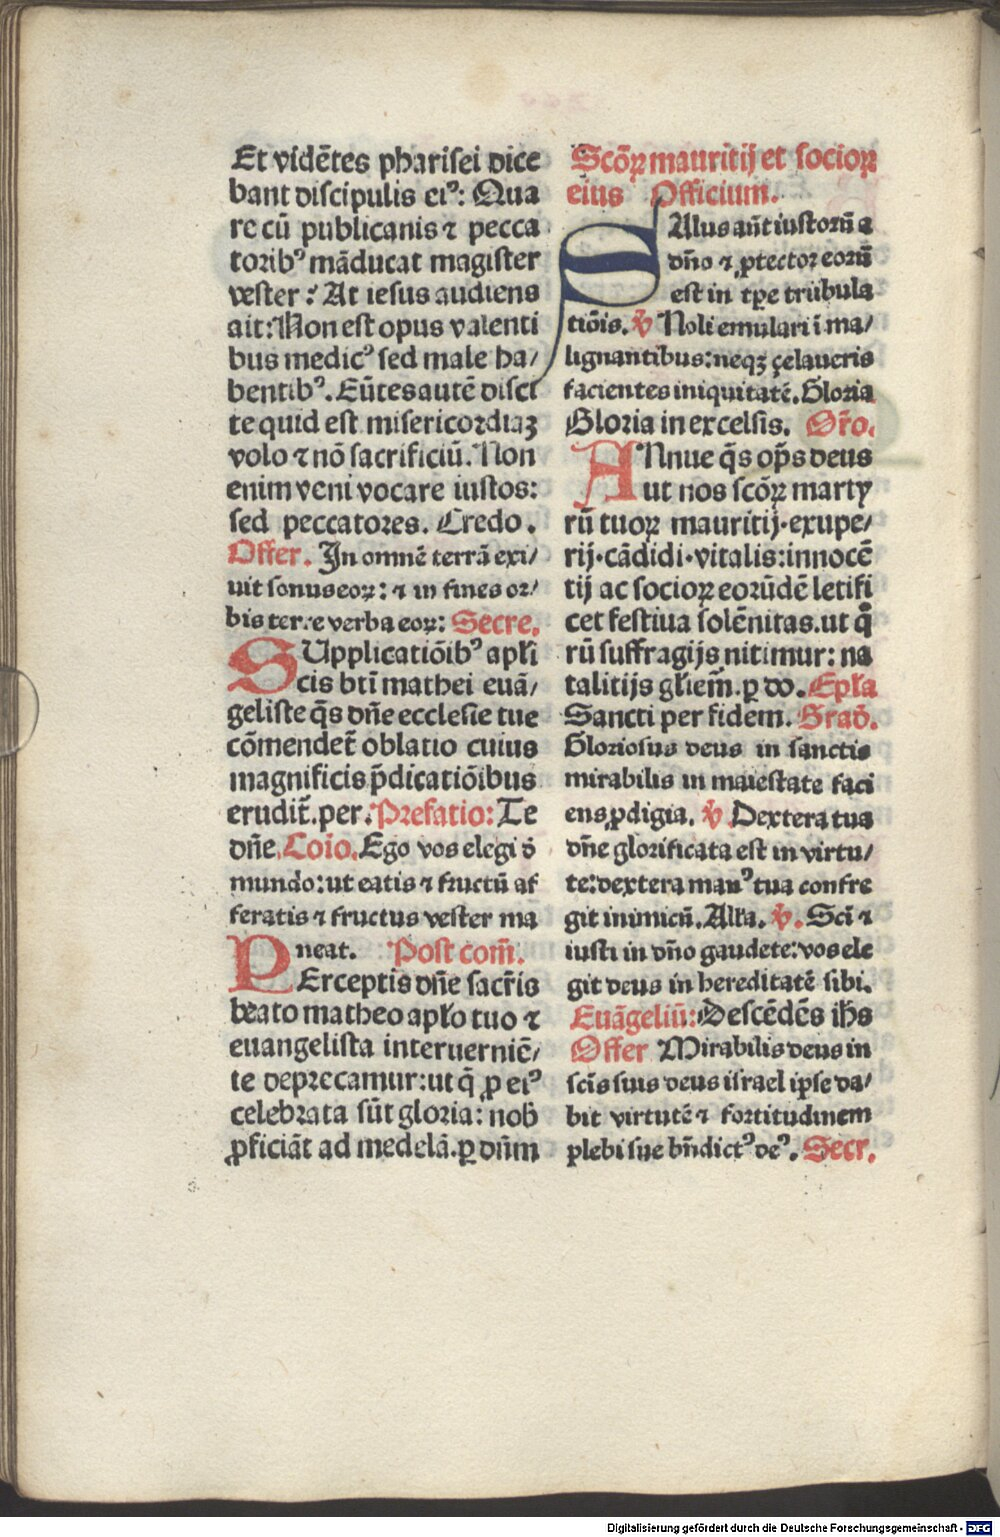 Et vidētes pharisei dice
bant discipulis ei⁹: Qua
re cū publicanis ⁊ pecca
torib⁹ māducat magister
vester: At iesus audiens
ait: Non est opus valenti
bus medic⁹ sed male ha/
bentib⁹. Eūtes autē disci
te quid est misericordiaꝫ
volo ⁊ nō sacrificiū. Non
enim veni vocare iustos:
sed peccatores. Credo.
Offer. In omnē terrā exi/
uit sonus eoꝝ: ⁊ in fines or/
bis terre verba eoꝝ: Secre.
SUpplicatiōib⁹ apłi
cis bti̅ mathei euā/
geliste q̄s dn̄e ecclesie tue
cōmendet̄ oblatio cuius
magnificis p̄dicatiōibus
erudit̄. per. Prefatio: Te
dn̄e. Coīo. Ego vos elegi ð
mundo: ut eatis ⁊ fructū af
feratis ⁊ fructus vester ma
neat. Post com̄.
PErceptis dn̄e sacr̄is
beato matheo apło tuo ⁊
euangelista interuerniē/
te deprecamur: ut q̄ ꝓ ei⁹
celebrata sūt gloria: nob̄
ꝓficiāt ad medelā. ꝑ dūm
Scōꝝ mauritij et socioꝝ
eius Officium.
SAlus aūt iustorū a
dn̄o ⁊ ꝓtector eorū
est in tꝑe tribula
tiōis. ℣ Noli emulari ī ma/
lignantibus: neqꝫ çelaueris
facientes iniquitatē. Gloria
Gloria in excelsis. Or̄o.
ANnue q̄s op̄s deus
ut nos scōꝝ marty
rū tuoꝝ mauritij·exupe/
rij·cādidi·vitalis: innocē
tij ac socioꝝ eorūdē letifi
cet festiua solēnitas. ut q̊
rū suffragijs nitimur: na
talitijs głiem̄. ꝑ do. Epła
Sancti per fidem. Grad̄.
Gloriosus deus in sanctis
mirabilis in maiestate faci
ens ꝓdigia. ℣ Dextera tua
dn̄e glorificata est in virtu/
te: dextera man⁹ tua confre
git inimicū. Ałła. ℣. Sci̅ ⁊
iusti in dn̄o gaudete: vos ele
git deus in hereditatē sibi.
Euāgeliū: Descēdēs ih̄s
Offer Mirabilis deus in
sc̄is suis deus israel ipse da/
bit virtutē ⁊ fortitudinem
plebi sue bn̄dict⁹ de⁹. Secr.
Digitalisierung gefördert durch die Deutsche Forschungsgemeinschaft - DFG